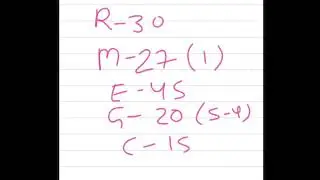 R-30
M-27 (1)
E-45
G-20 (5-4)
C-15